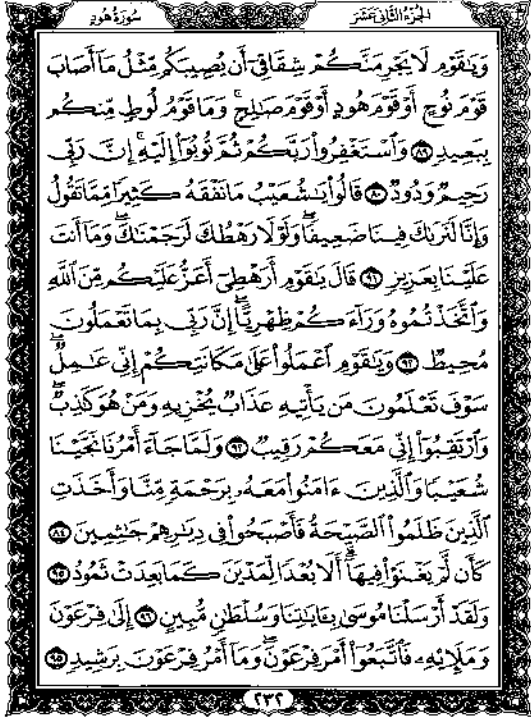 الجزء الثاني عشر
سورة هود
وَيَٰقَوْمِ لَا يَجْرِمَنَّكُمْ شِقَاقِىٓ أَن يُصِيبَكُم مِّثْلُ مَآ أَصَابَ
قَوْمَ نُوحٍ أَوْ قَوْمَ هُودٍ أَوْ قَوْمَ صَٰلِحٍ ۚ وَمَا قَوْمُ لُوطٍ مِّنكُم
بِبَعِيدٍ ٨٩ وَٱسْتَغْفِرُوا۟ رَبَّكُمْ ثُمَّ تُوبُوٓا۟ إِلَيْهِ ۚ إِنَّ رَبِّى
رَحِيمٌ وَدُودٌ قَالُوا۟ يَٰشُعَيْبُ مَا نَفْقَهُ كَثِيرًا مِّمَّا تَقُولُ
وَإِنَّا لَنَرَىٰكَ فِينَا ضَعِيفًا ۖ وَلَوْلَا رَهْطُكَ لَرَجَمْنَٰكَ ۖ وَمَآ أَنتَ
عَلَيْنَا بِعَزِيزٍ ٩١ قَالَ يَٰقَوْمِ أَرَهْطِىٓ أَعَزُّ عَلَيْكُم مِّنَ ٱللَّهِ
وَٱتَّخَذْتُمُوهُ وَرَآءَكُمْ ظِهْرِيًّا ۖ إِنَّ رَبِّى بِمَا تَعْمَلُونَ
مُحِيطٌ ٩٢ وَيَٰقَوْمِ ٱعْمَلُوا۟ عَلَىٰ مَكَانَتِكُمْ إِنِّى عَٰمِلٌ ۖ
سَوْفَ تَعْلَمُونَ مَن يَأْتِيهِ عَذَابٌ يُخْزِيهِ وَمَنْ هُوَ كَٰذِبٌ ۖ
وَٱرْتَقِبُوٓا۟ إِنِّى مَعَكُمْ رَقِيبٌ ٩٣ وَلَمَّا جَآءَ أَمْرُنَا نَجَّيْنَا
شُعَيْبًا وَٱلَّذِينَ ءَامَنُوا۟ مَعَهُۥ بِرَحْمَةٍ مِّنَّا وَأَخَذَتِ
ٱلَّذِينَ ظَلَمُوا۟ ٱلصَّيْحَةُ فَأَصْبَحُوا۟ فِى دِيَٰرِهِمْ جَٰثِمِينَ
كَأَن لَّمْ يَغْنَوْا۟ فِيهَآ ۗ أَلَا بُعْدًا لِّمَدْيَنَ كَمَا بَعِدَتْ ثَمُودُ ٩٥
وَلَقَدْ أَرْسَلْنَا مُوسَىٰ بِـَٔايَٰتِنَا وَسُلْطَٰنٍ مُّبِينٍ ٩٦ إِلَىٰ فِرْعَوْنَ
وَمَلَإِي۟هِۦ فَٱتَّبَعُوٓا۟ أَمْرَ فِرْعَوْنَ ۖ وَمَآ أَمْرُ فِرْعَوْنَ بِرَشِيدٍ
٢٣٢